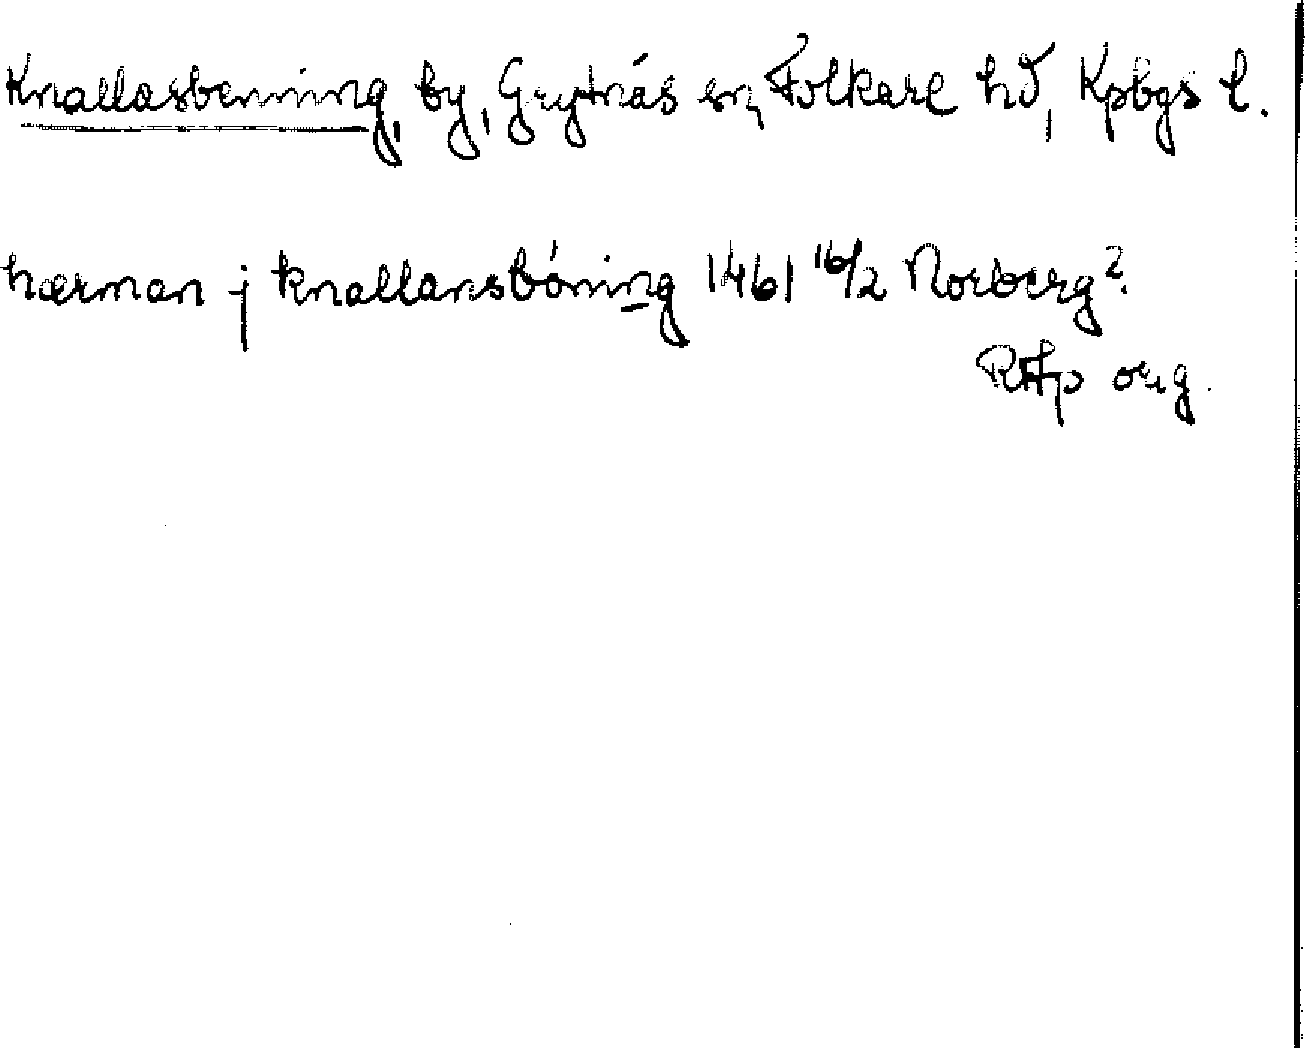 Knallasbenning, by, Grytnäs sn, Folkare hd, Kpbgs l.
hærman j knallansböning 1461 16/2 Norberg?
RAp orig.